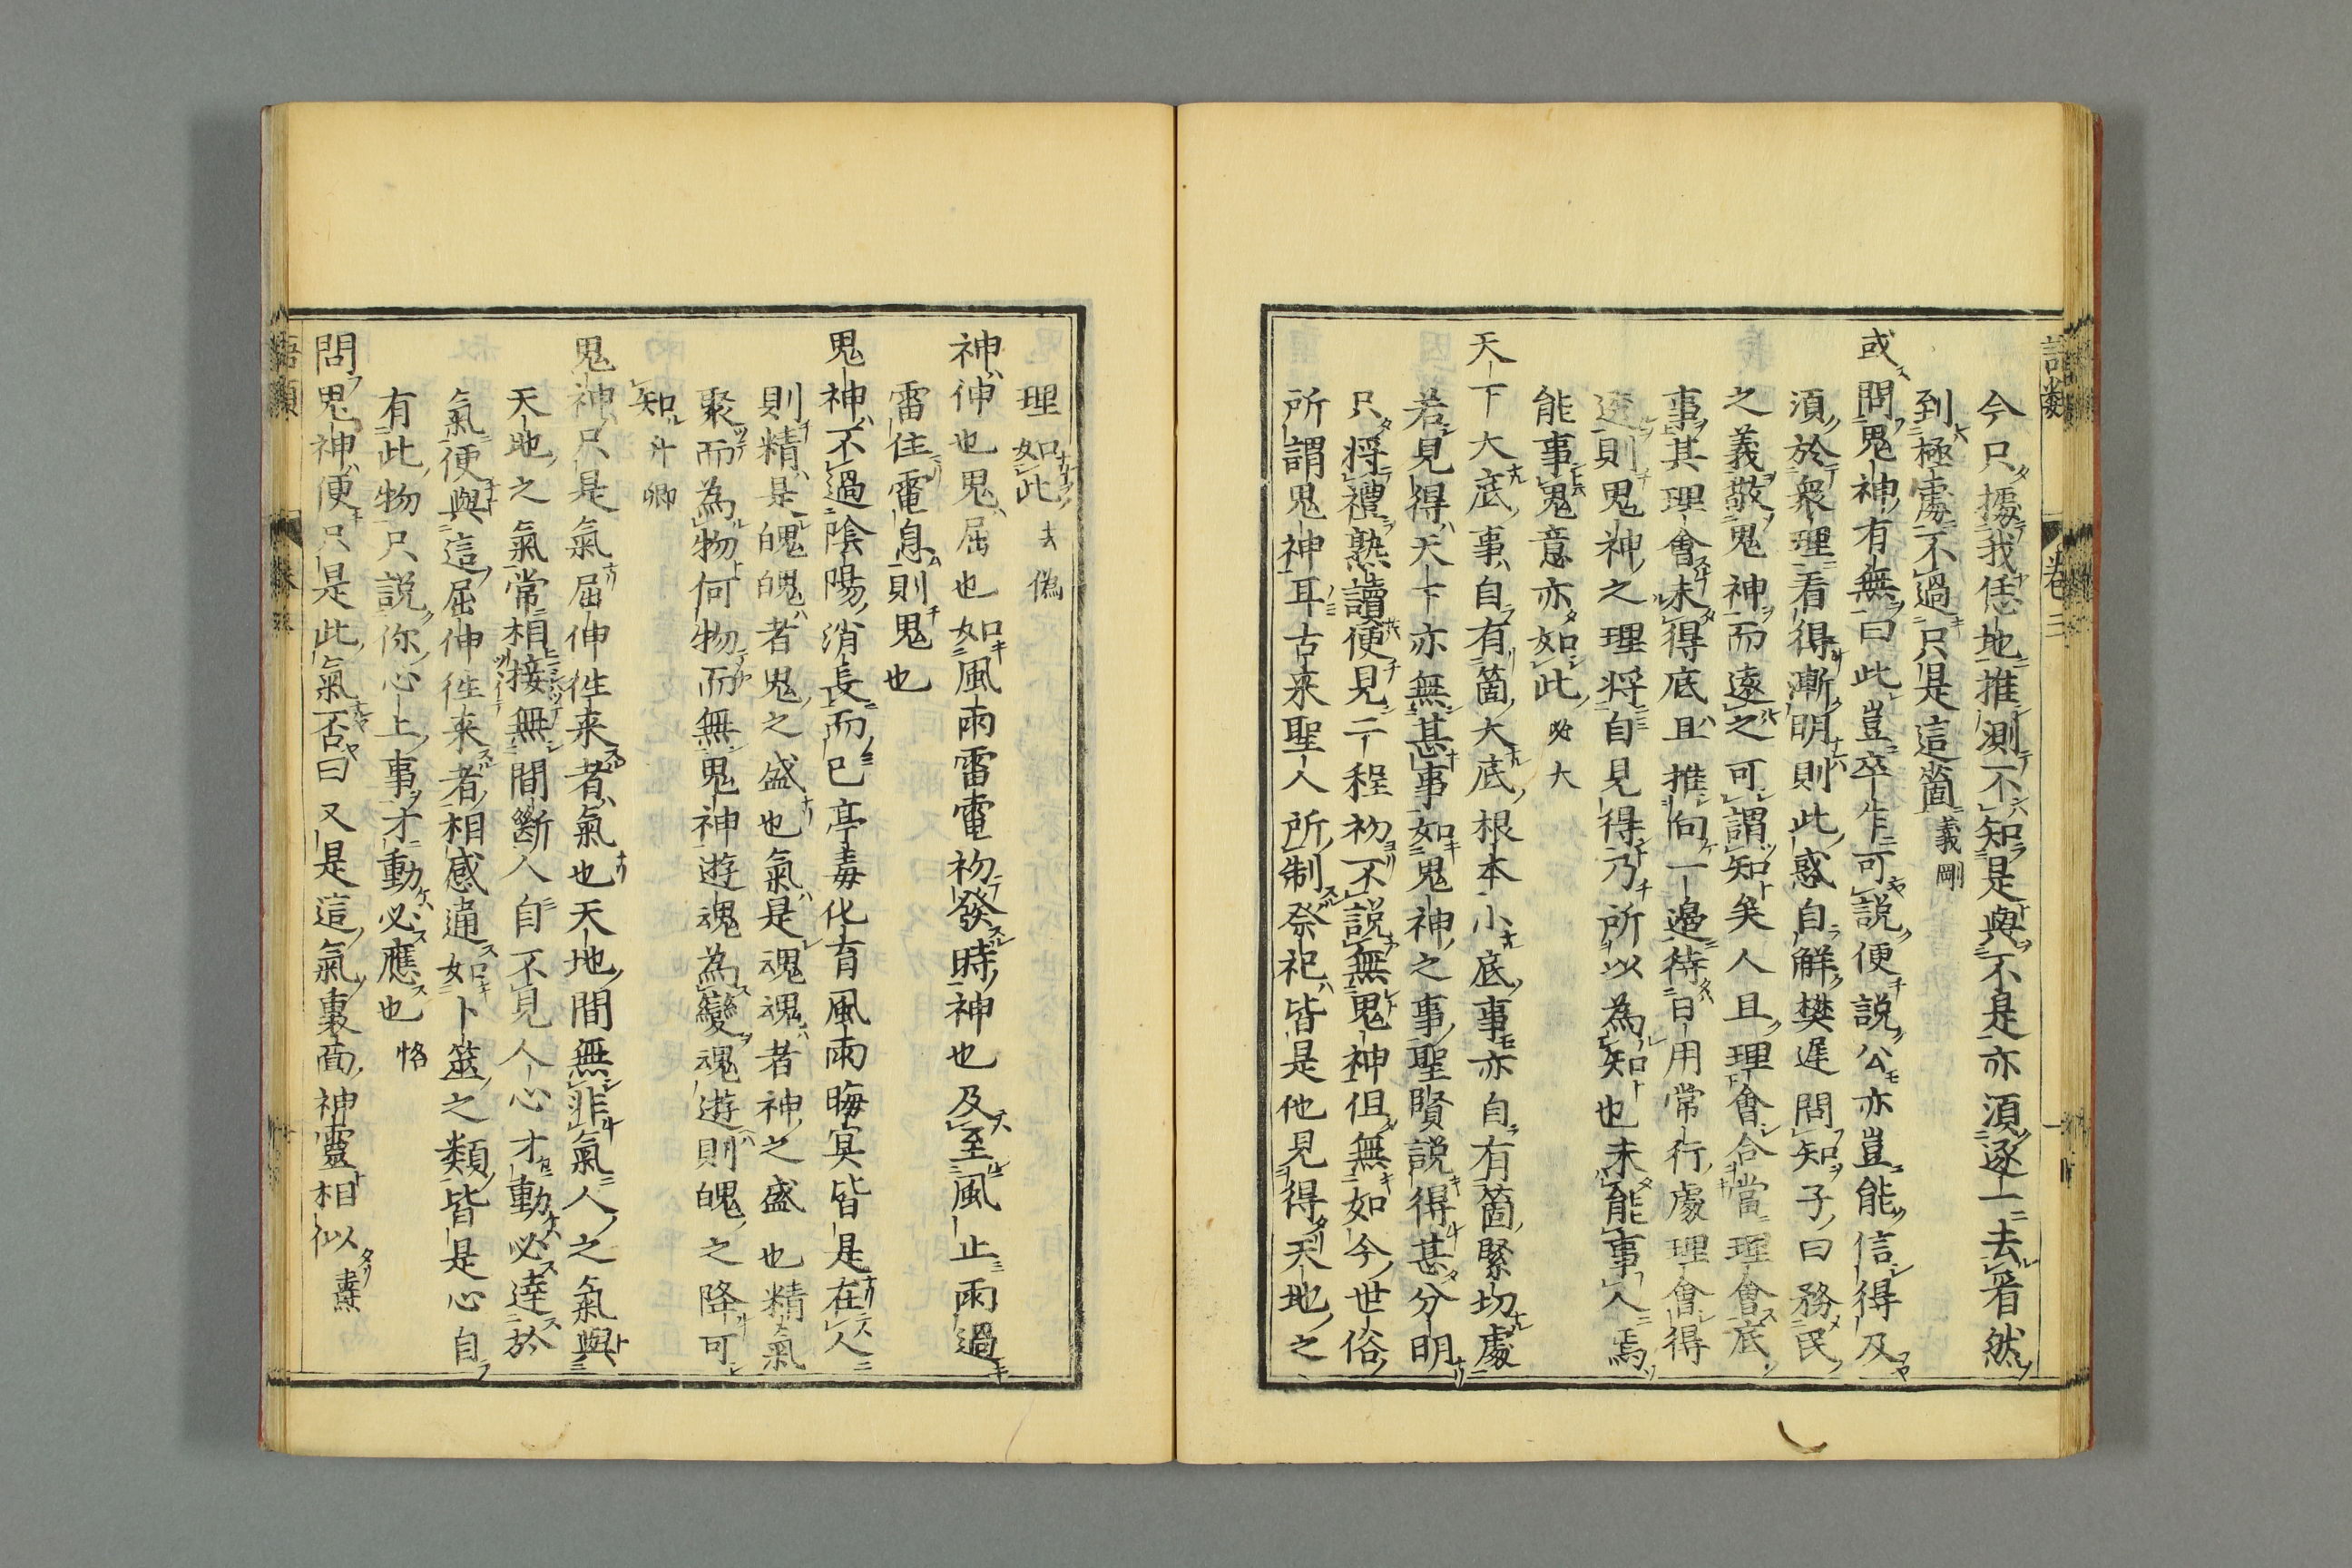 今只據我恁地推測不知是與不是亦須逐一去看然
到極處不過只是這箇義剛
或問鬼神有無曰此豈卒乍可說便說公亦豈能信得及
須於衆理看得漸明則此惑自解樊遲問知子曰務民
之義敬鬼神而遠之可謂知矣人且理會合當理會底
事其理會未得底且推向一邊待日用常行處理會得
透則鬼神之理將自見得乃所以為知也未能事人焉
能事鬼意亦如此必大
天下大底事自有箇大底根本小底事亦自有箇緊切處
若見得天下亦無甚事如鬼神之事聖賢說得甚分明
只將禮熟讀便見二程初不說無鬼神但無如今世俗
所謂鬼神耳古来聖人所制祭祀皆是他見得天地之
理如此去偽
神伸也鬼屈也如風雨雷電初發時神也及至風止雨過
雷住電息則鬼也
鬼神不過陰陽消長而已亭毒化育風雨晦冥皆是在人
則精是魄魄者鬼之盛也氣是魂魂者神之盛也精氣
聚而為物何物而無鬼神遊魂為變魂遊則魄之降可
知升卿
鬼神只是氣屈伸往来者氣也天地間無非氣人之氣與
天地之氣常相接無間斷人自不見人心才動必達於
氣便與這屈伸往来者相感通如卜筮之類皆是心自
有此物只說你心上事才動必應也恪
問鬼神便只是此氣否曰又是這氣裏面神靈相似燾